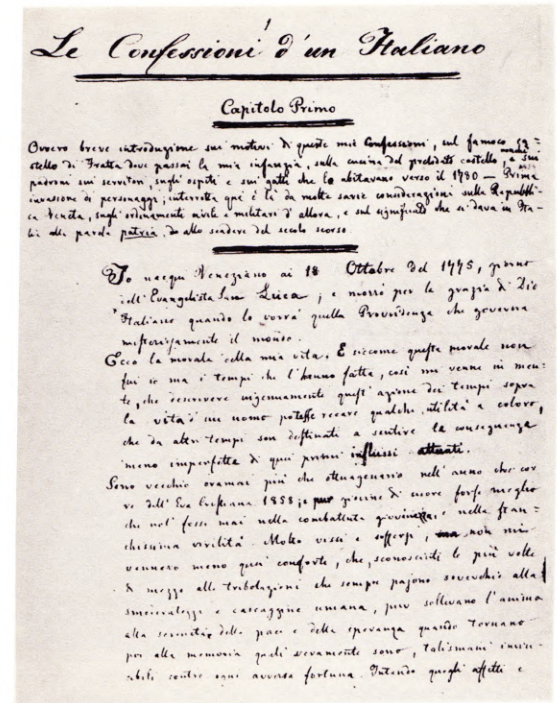 1
Le Confessioni d'un Italiano
Capitolo Primo
Ovvero breve introduzione sui motivi di queste mie Confessioni, sul famoso ca=
stello di Fratta dove passai la mia infanzia, sulla cucina del prelodato castello,
padroni sui servitori, sugli ospiti e sui gatti che lo abitavano verso il 1780 — Prima
invasione di personaggi; interrotta qui e là da molte sarie considerazioni sulla Repubbli=
ca Veneta, sugli ordinamenti civili e militari d'allora, e sul significato che si dava in Ita=
lia alla parola patria, allo scadere del secolo scorso.
Io nacqui Veneziano ai 18 Ottobre del 1775, giorno
dell'Evangelista San Luca; e morrò per la grazia di Dio
Italiano quando lo vorrà quella Provvidenza che governa
misteriosamente il mondo.
Ecco la morale della mia vita. E siccome questa morale non
fui io ma i tempi che l'hanno fatta, così mi venne in men=
te, che descrivere ingenuamente quest'azione dei tempi sopra
la vita d'un uomo potesse recare qualche utilità a coloro,
che da altri tempi son destinati a sentire la conseguenza
meno imperfetta di quei primi influssi attuati.
Sono vecchio oramai più che ottuagenario nell'anno che cor=
re dell'Era Cristiana 1858; e pur giovine di cuore forse meglio
che nol fossi mai nella combattuta giovinezza, e nella stan=
chissima virilità. Molto vissi e soffersi, ma non mi
vennero meno quei conforti, che, sconosciuti le più volte
di mezzo alle tribolazioni che sempre pajono soverchie alla
smoderatezza e cascaggine umana, pur sollevano l'anima
alla serenità della pace e della speranza quando tornano
poi alla memoria quali veramente sono, talismani invin=
cibili contro ogni avversa fortuna. Intendo quegli affetti e